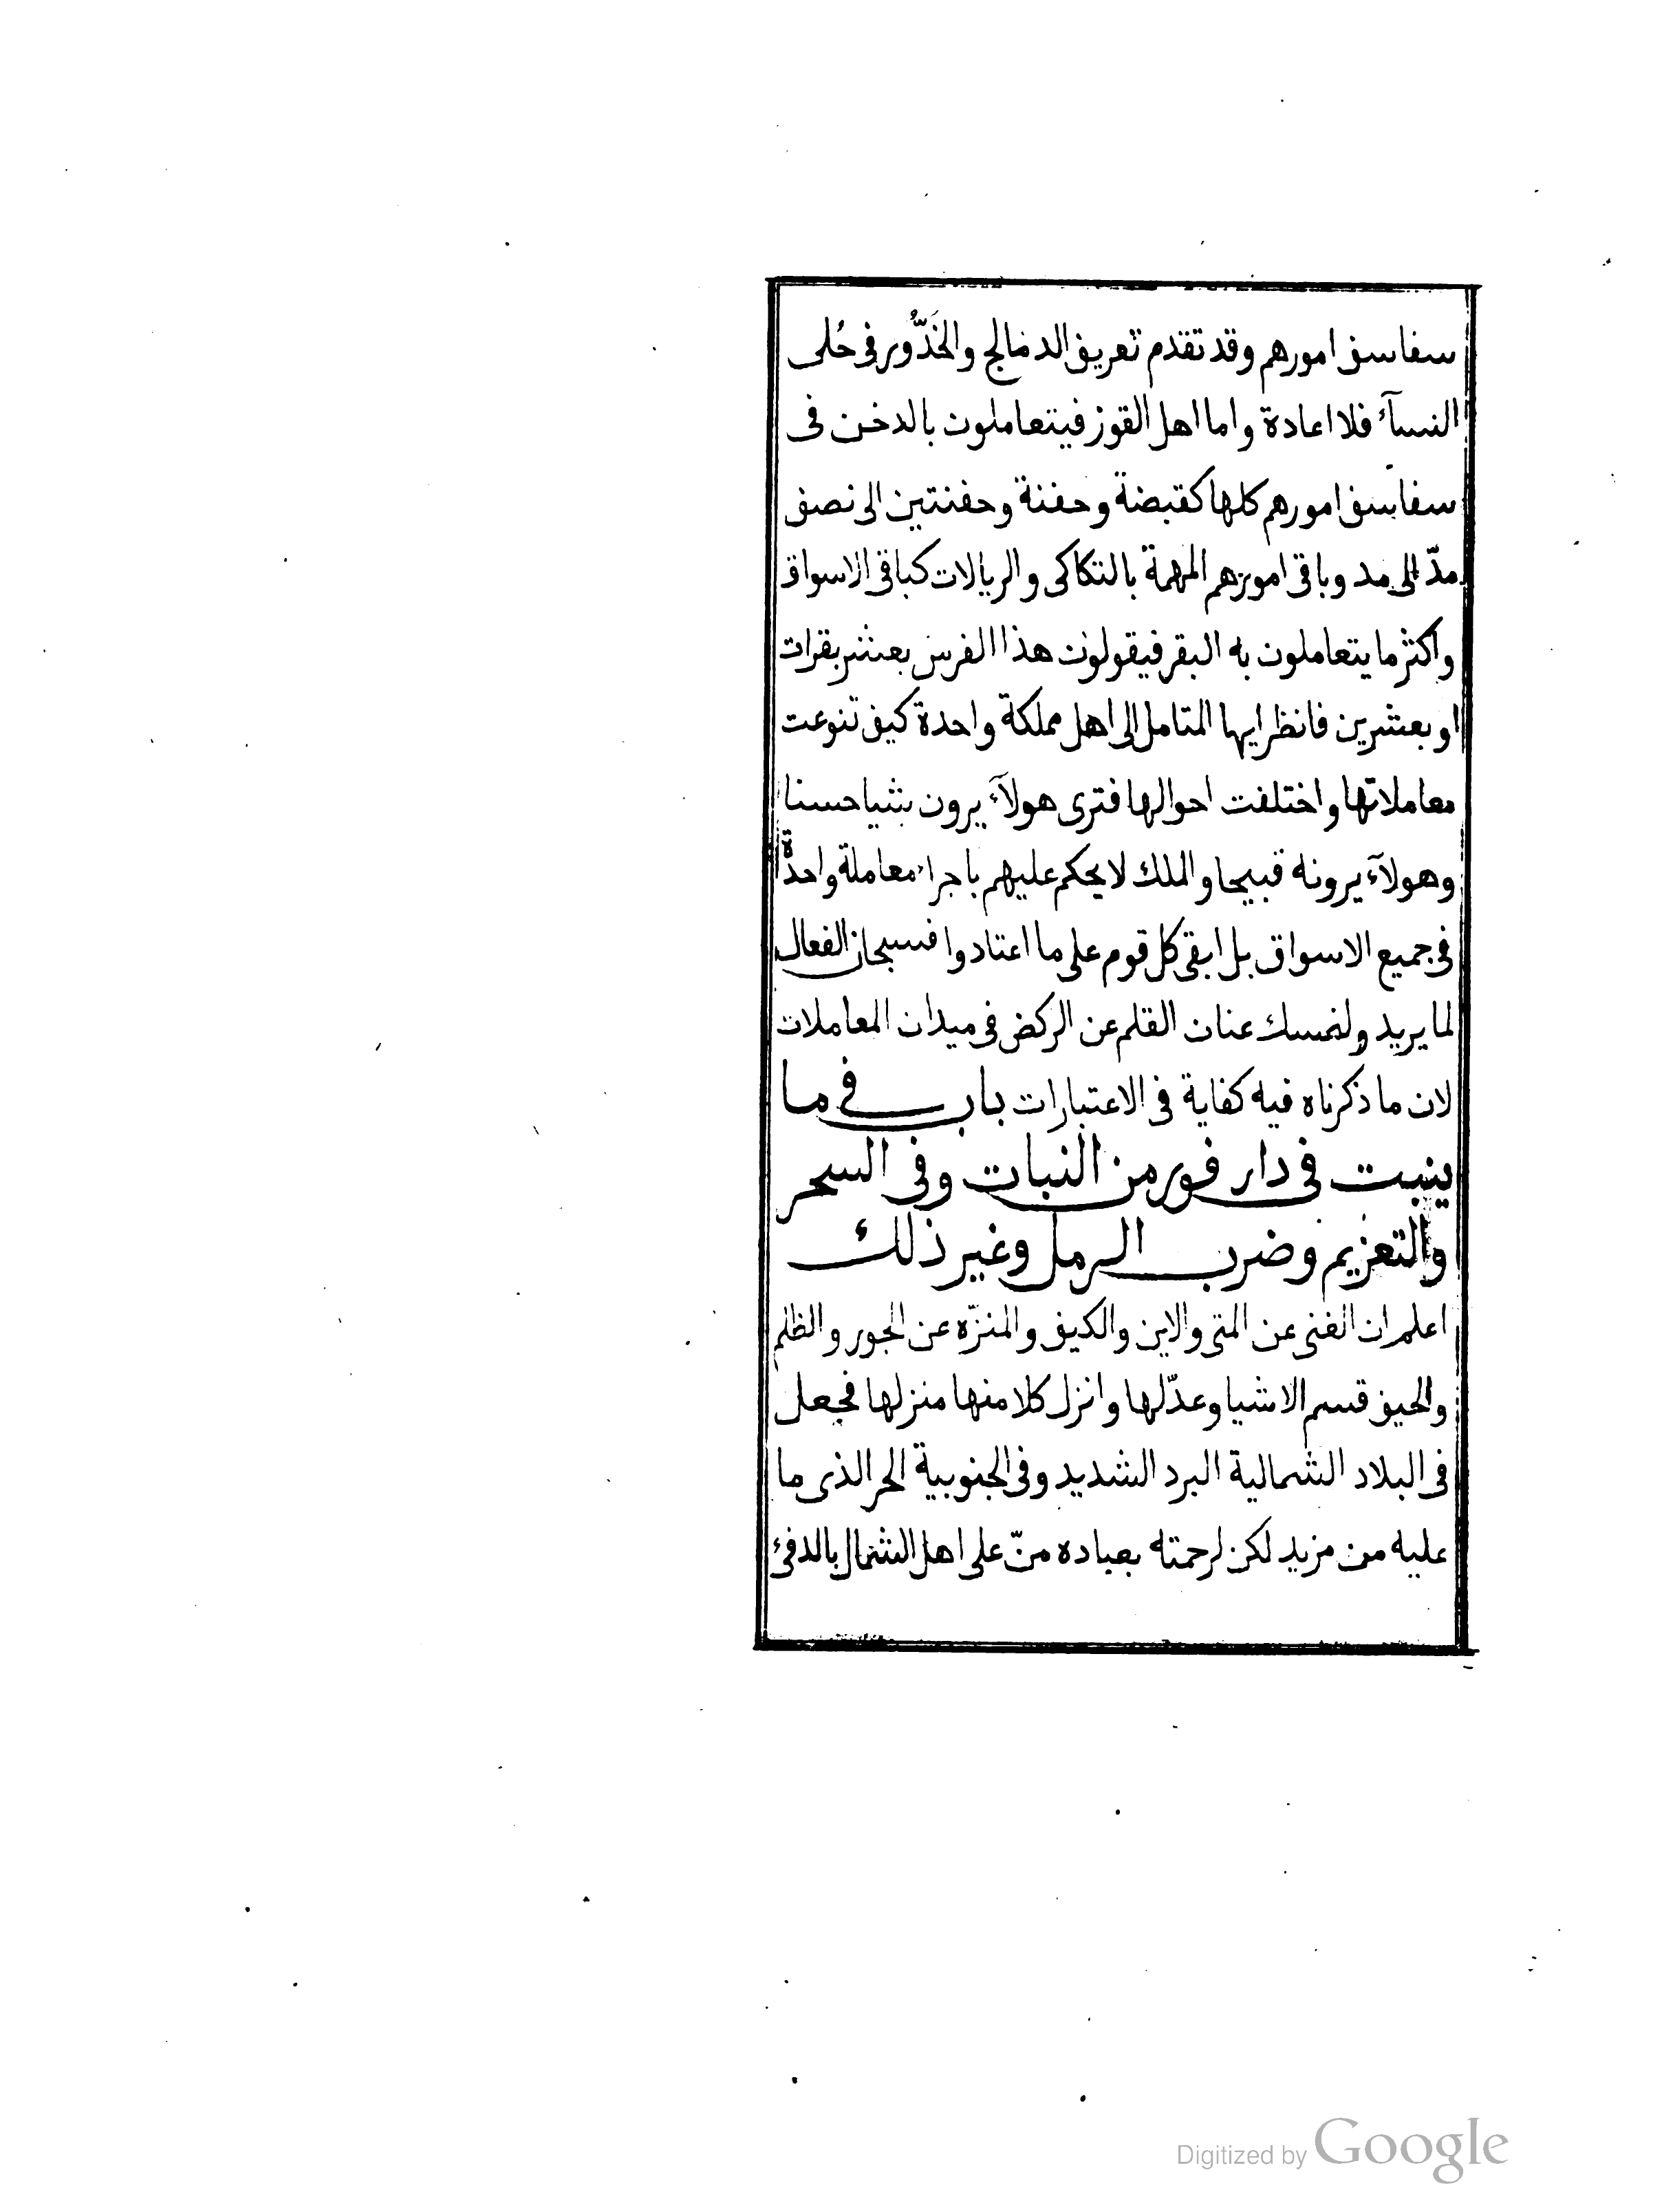 سفاسف امورهم وقد تقدم تعريف الدمالج والخَدُّور فى حُلى
النسآء فلا اعادة واما اهل القوز فيتعاملون بالدخن فى
سفاسف امورهم كلها كقبضة وحفنة وحفنتين الى نصف
مدّ الى مد وباقى امورهم المهمة بالتكاكى والريالات كباقى الاسواق
واكثر ما يتعاملون به البقر فيقولون هذا الفرس بعشر بقرات
او بعشرين فانظر ايها المتامل الى اهل مملكة واحدة كيف تنوعت
معاملاتها واختلفت احوالها فترى هولآء يرون شيا حسنا
وهولآء يرونه قبيحا والملك لا يحكم عليهم باجراء معاملة واحدة
فى جميع الاسواق بل ابقى كل قوم على ما اعتادوا فسبحان الفعال
لما يريد ولنمسك عنان القلم عن الركض فى ميدان المعاملات
لان ما ذكرناه فيه كفاية فى الاعتبارات باب فى ما
ينبت فى دار فور من النبات وفى السحر
والتعزيم وضرب الرمل وغير ذلك
اعلم ان الغنى عن المتى والاين والكيف والمنزّه عن الجور والظلم
والحيف قسم الاشيا وعدّلها وانزل كلا منها منزلها فجعل
فى البلاد الشمالية البرد الشديد وفى الجنوبية الحر الذى ما
عليه من مزيد لكن لرحمته بعباده منّ على اهل الشمال بالدفئ
Digitized by Google